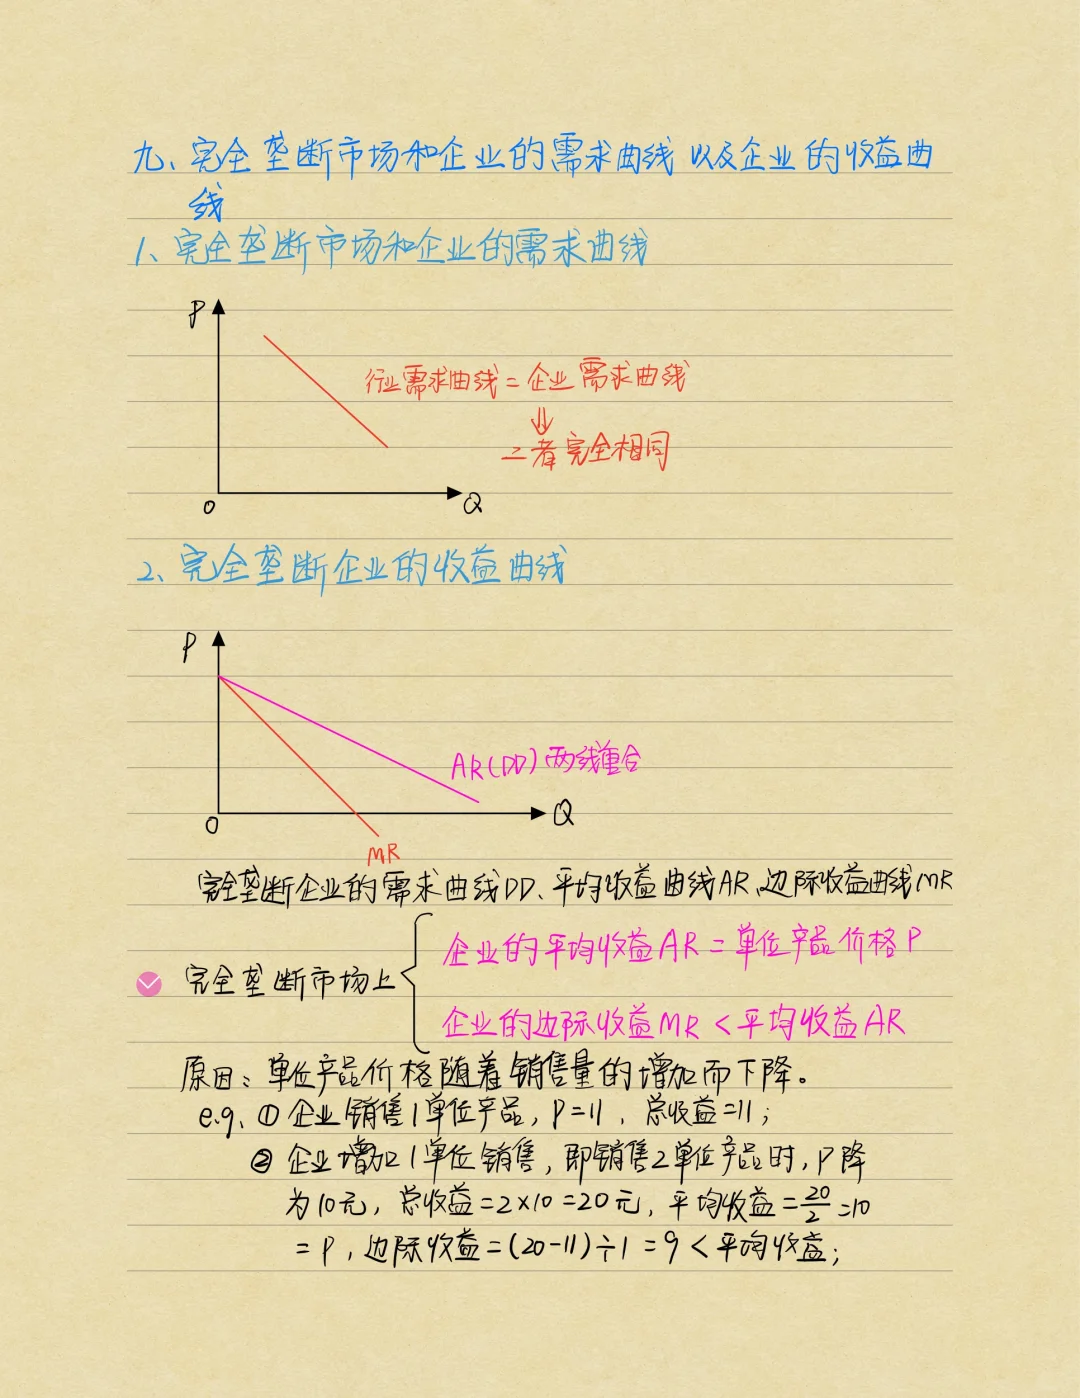 九、完全垄断市场和企业的需求曲线以及企业的收益曲
线
1、完全垄断市场和企业的需求曲线
P
行业需求曲线=企业需求曲线
⇓
二者完全相同
O
Q
2、完全垄断企业的收益曲线
P
AR(DD)两线重合
O
Q
MR
完全垄断企业的需求曲线DD、平均收益曲线AR、边际收益曲线MR
企业的平均收益AR=单位产品价格P
完全垄断市场上
企业的边际收益MR<平均收益AR
原因:单位产品价格随着销售量的增加而下降。
e.g. ①企业销售1单位产品,P=11,总收益=11;
②企业增加1单位销售,即销售2单位产品时,P降
为10元,总收益=2×10=20元,平均收益=20/2=10
=P,边际收益=(20-11)÷1=9<平均收益;